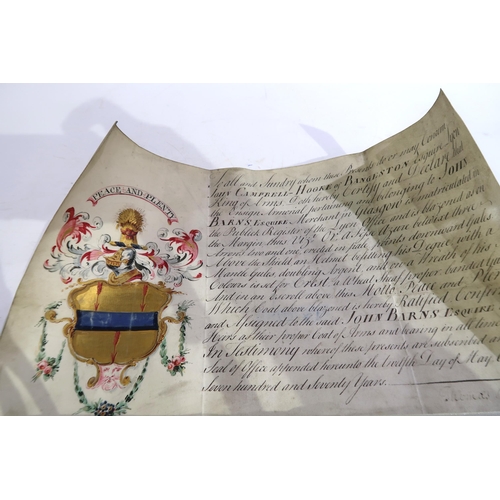 PEACE·AND·PLENTY
To all and Sundry whom these Presents do or may Concern
John Campbell-Hooke of Bangeston Esquire Lyon
King of Arms Doth hereby Certify and Declare that
the Ensigns Armorial pertaining and belonging to John
Barns Esquire Merchant in Glasgow is matriculated in
the Publick Register of the Lyon Office and is blazoned as on
the Margin thus Viz. Or a Fess Azure betwixt three
Above the Shield and Helmet befitting his Degree with a
Mantle Gules doubling Argent and on a Wreath of his
Colours is set for Crest a Wheat Sheaf proper banded
And in an Escroll above this Motto Peace and
Which Coat above blazoned is hereby Ratified
and Assigned to the said John Barns Esquire
Heirs as their proper Coat of Arms and bearing in all time
In Testimony whereof these presents are subscribed
Seal of Office appended hereunto the twelfth Day of May
Seven hundred and Seventy Years.